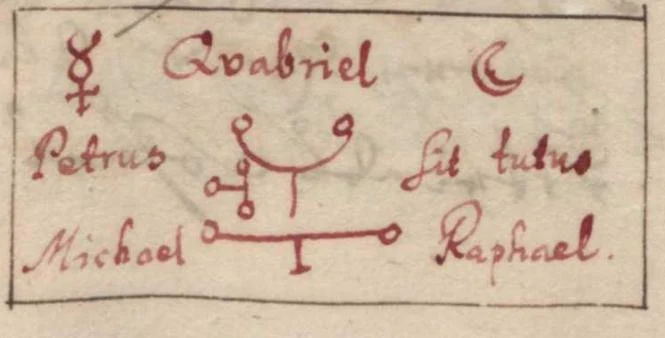 ☿ Qvabriel ☾
Petrus Sit tutus
Michael Raphael.